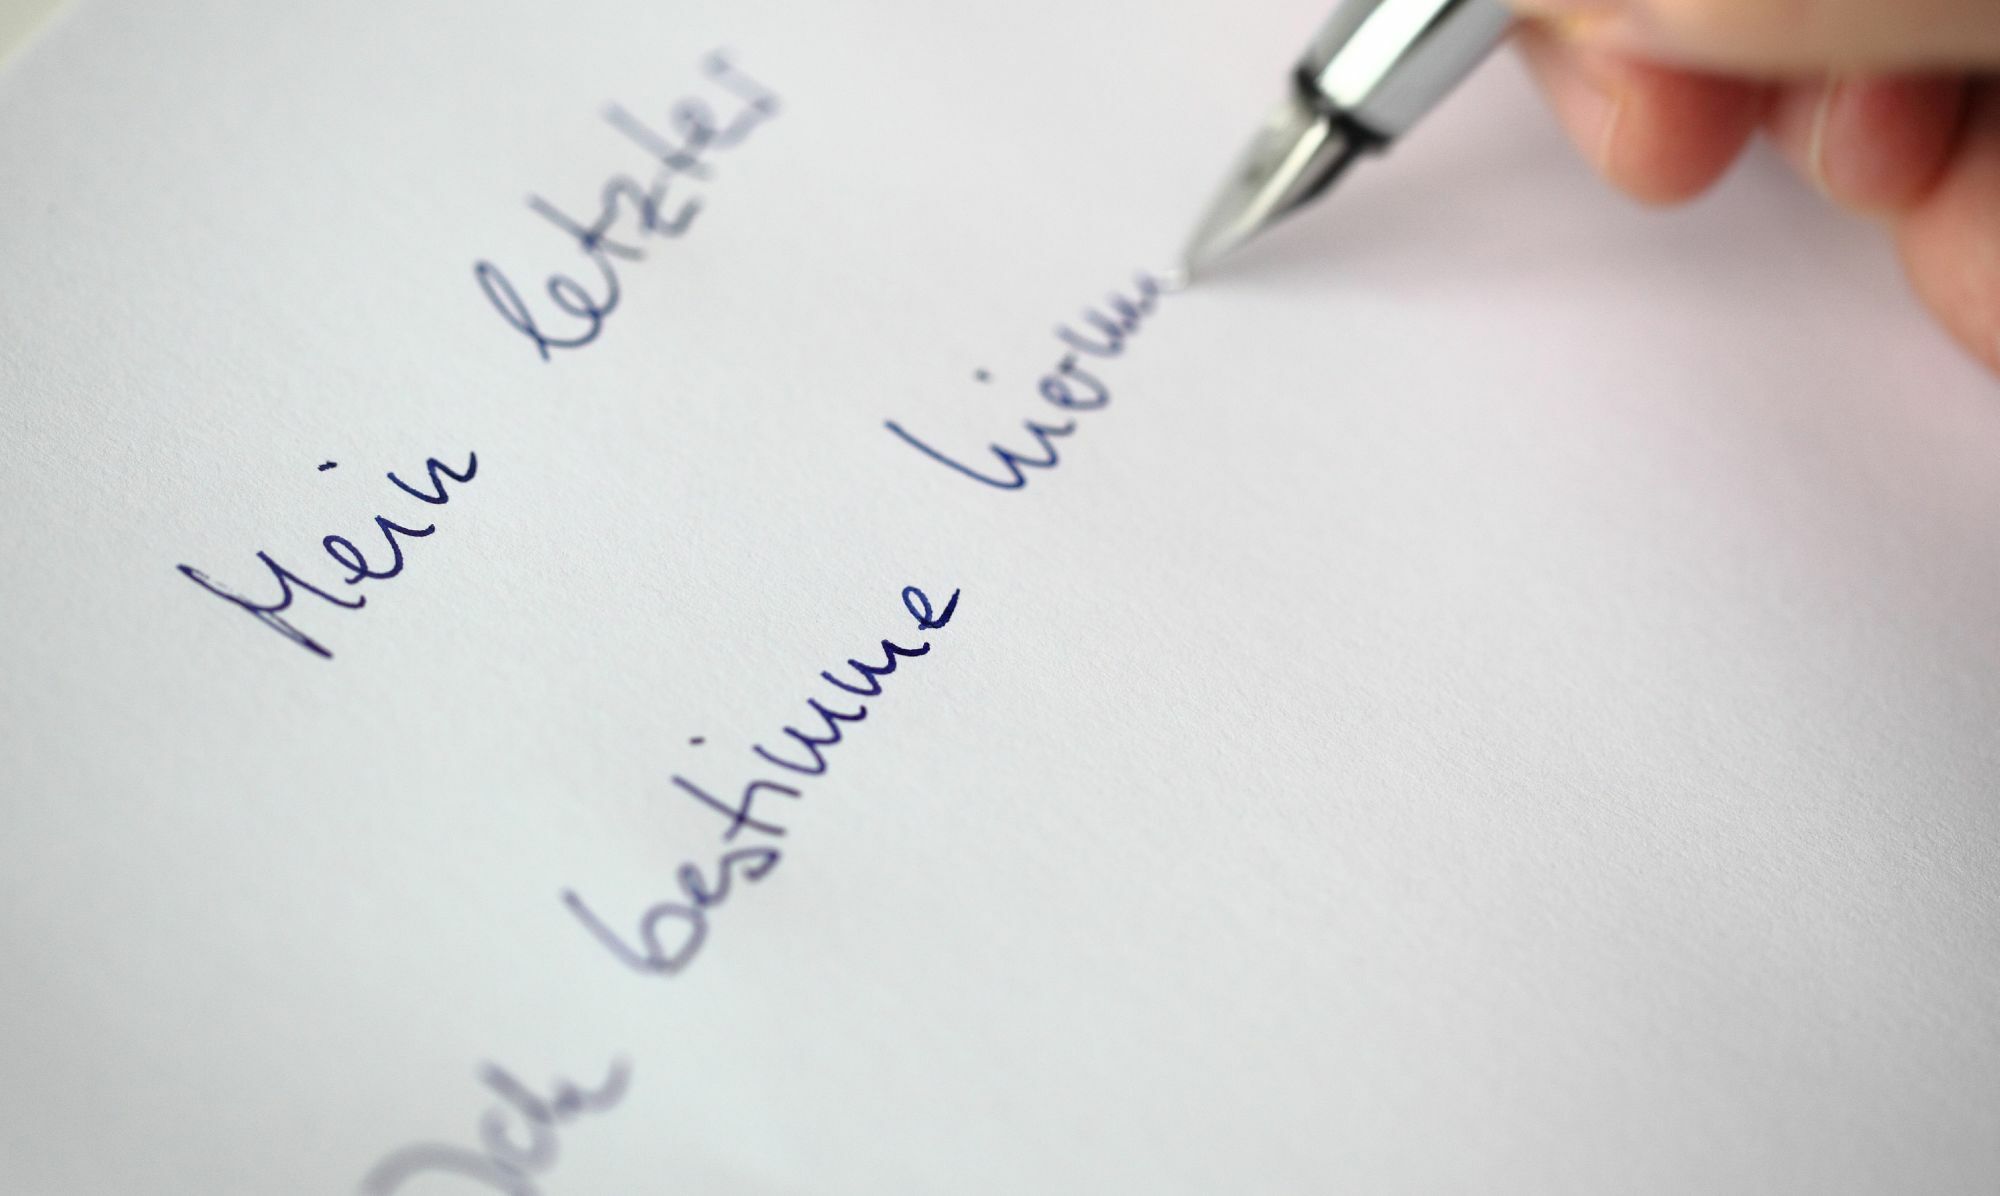 Mein letzter
Ich bestimme hierm